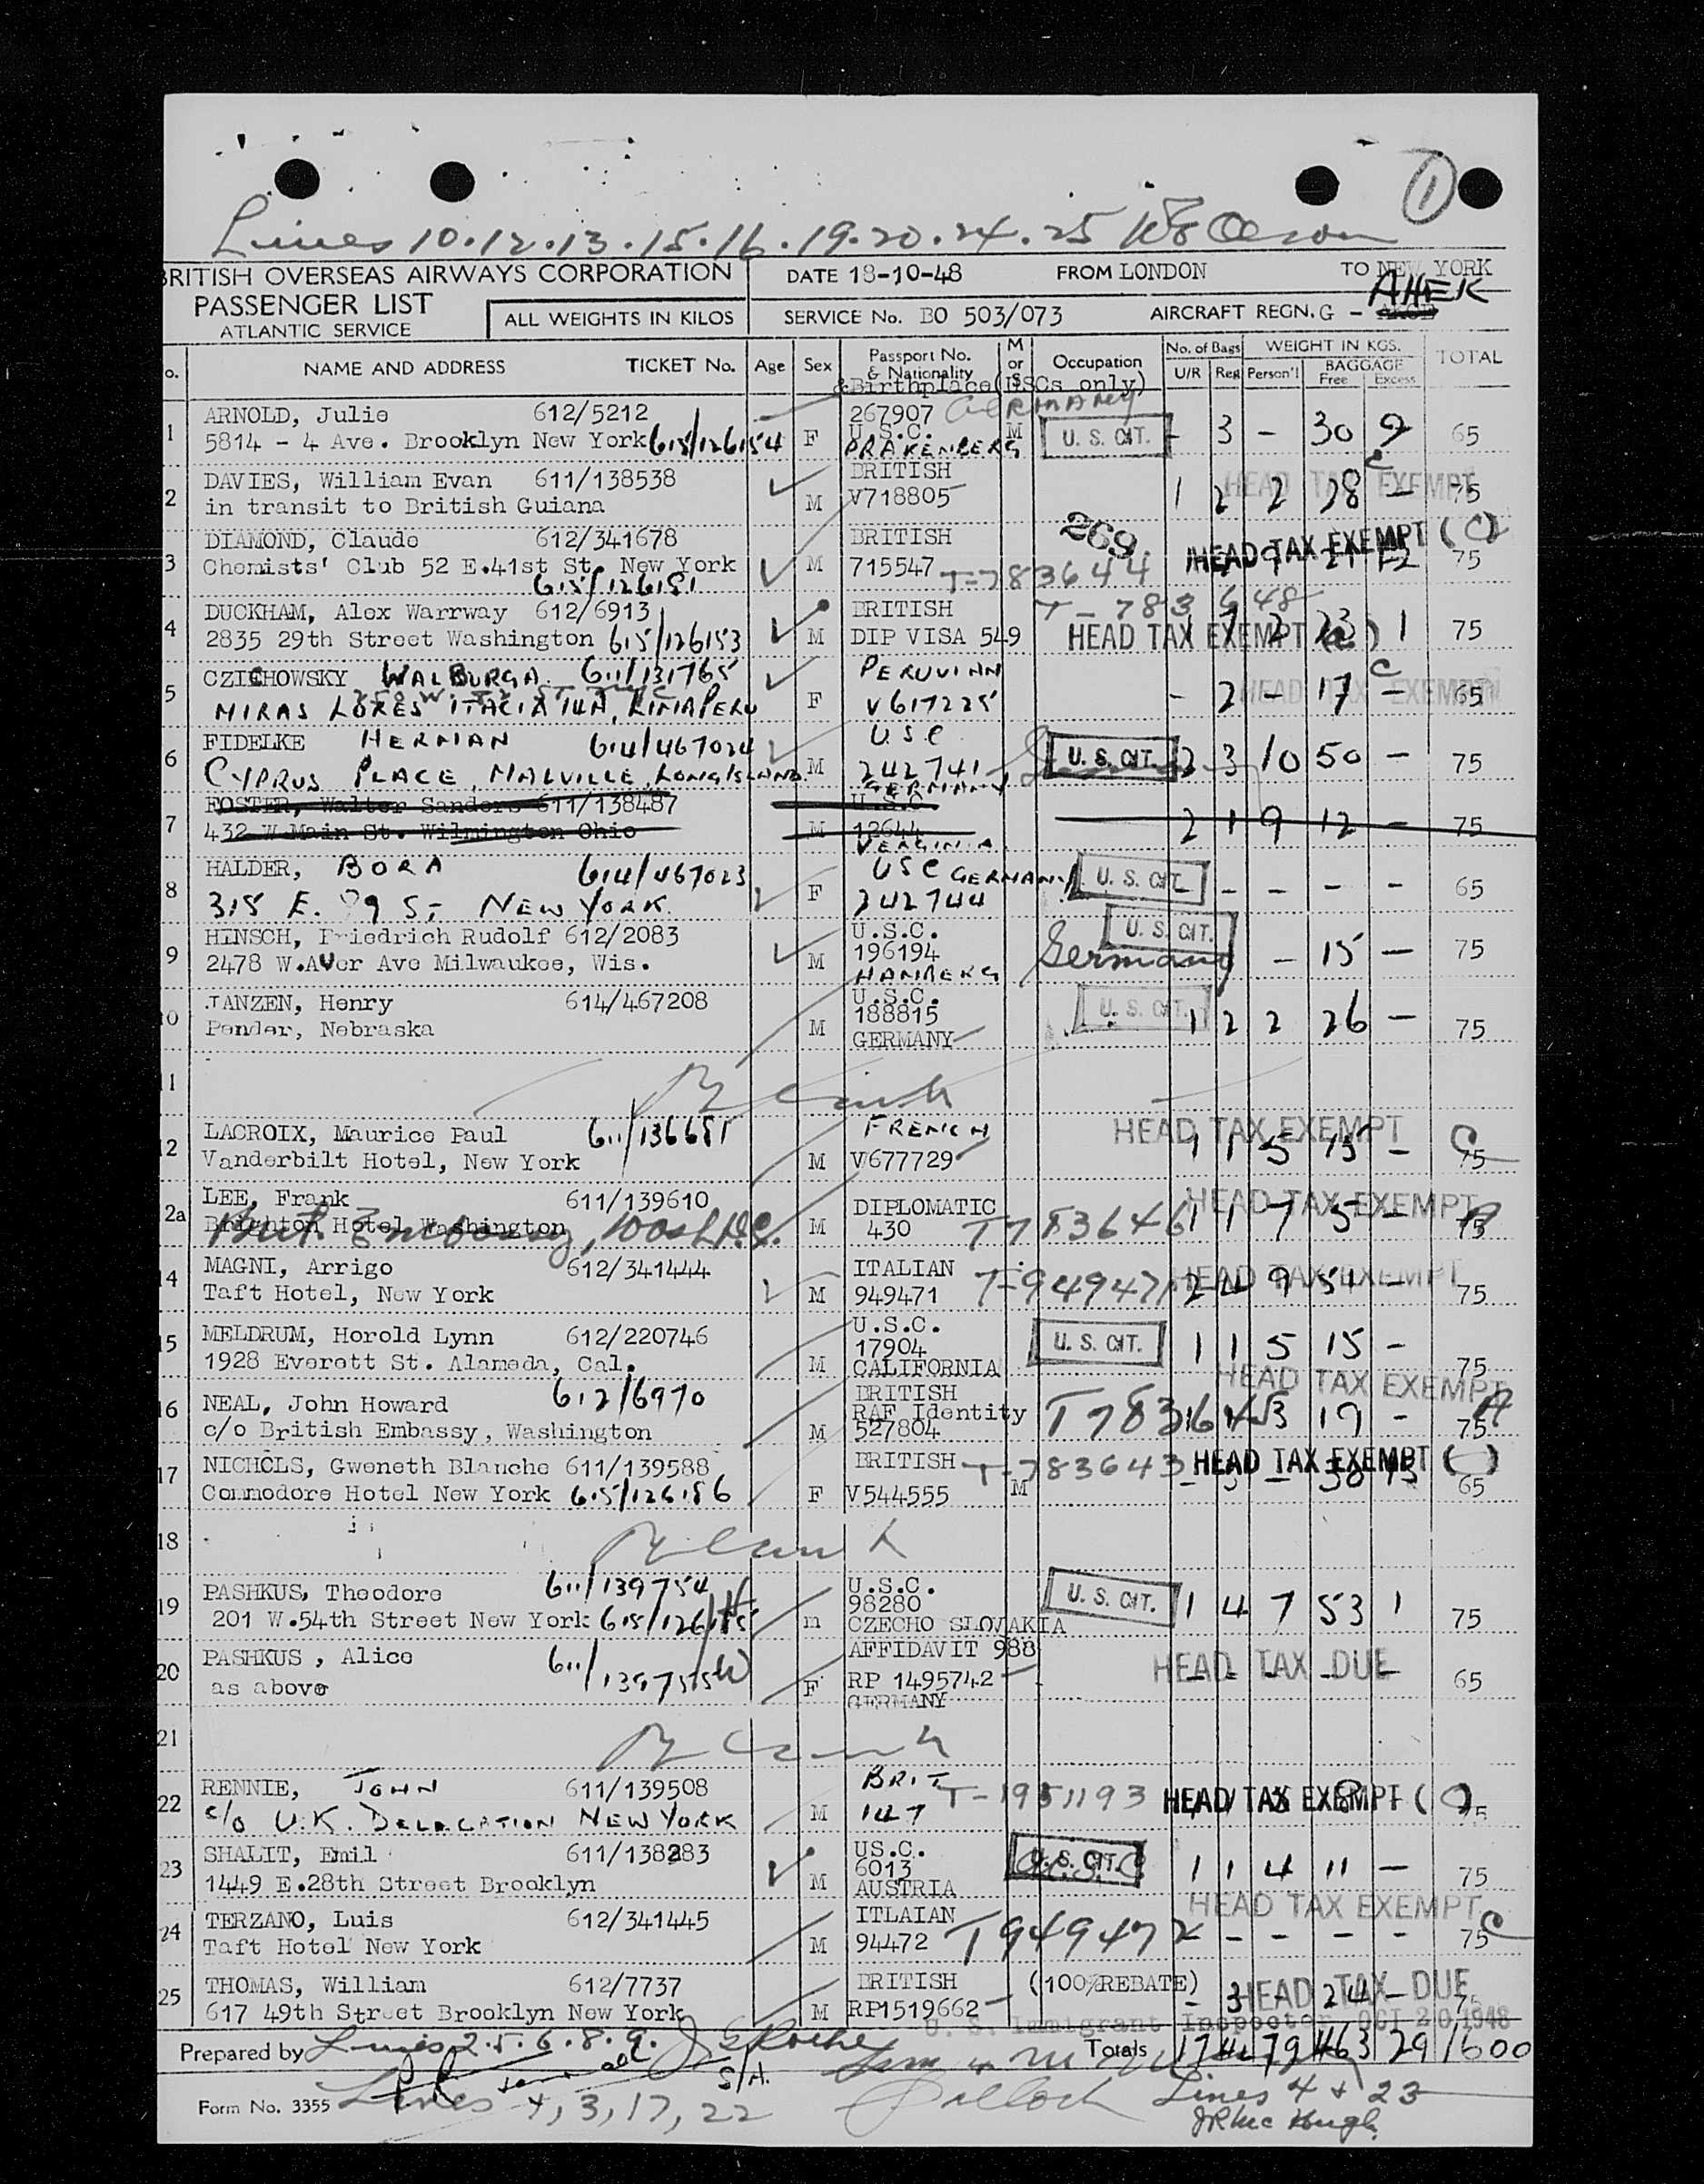 1
Lines 10.12.13.15.16.19.20.24.25
BRITISH OVERSEAS AIRWAYS CORPORATION
PASSENGER LIST
ATLANTIC SERVICE
ALL WEIGHTS IN KILOS
DATE 18-10-48 FROM LONDON TO NEW YORK
SERVICE No. BO 503/073 AIRCRAFT REGN. G - AHEK
o. NAME AND ADDRESS TICKET No. Age Sex Passport No. & Nationality M or S Occupation No. of Bags U/R Reg WEIGHT IN KGS. Person'l BAGGAGE Free Excess TOTAL
&Birthplace(USCs only)
1 ARNOLD, Julie 612/5212 267907 GERMANY
5814 - 4 Ave. Brooklyn New York 615/126154 F U.S.C. M U. S. CIT. - 3 - 30 9 65
BRAKENBERG
2 DAVIES, William Evan 611/138538 BRITISH HEAD TAX EXEMPT C
in transit to British Guiana M V718805 1 2 2 28 - 75
3 DIAMOND, Claude 612/341678 BRITISH 269 HEAD TAX EXEMPT (C)
Chemists' Club 52 E.41st St. New York M 715547 T-783644 75
615/126151
4 DUCKHAM, Alex Warrway 612/6913 BRITISH T-783648
2835 29th Street Washington 615/126153 M DIP VISA 549 HEAD TAX EXEMPT 1 75
5 CZICHOWSKY WALBURGA 611/131765 PERUVIAN C
F V617225 - 2 - 17 - HEAD TAX EXEMPT 65
6 FIDELKE HERMAN 614/467024 U.S.C.
CYPRUS PLACE, MALVILLE, LONG ISLAND. M 242741 U. S. CIT. 2 3 10 50 - 75
GERMANY
7 FOSTER, Walter Sanders 611/138487 U.S.C.
432 W Main St. Wilmington Ohio M 12644 2 1 9 12 - 75
8 HALDER, BORA 614/467023 USC GERMANY U. S. CIT.
315 E. 89 St NEW YORK F 242744 - - - - 65
9 HINSCH, Friedrich Rudolf 612/2083 U.S.C. U. S. CIT.
2478 W.AVer Ave Milwaukee, Wis. M 196194 Germany - 15 - 75
HAMBERG
10 JANZEN, Henry 614/467208 U.S.C. U. S. CIT.
Pender, Nebraska M 188815 1 2 2 26 - 75
GERMANY
11 Blank
12 LACROIX, Maurice Paul 611/136651 FRENCH HEAD TAX EXEMPT C
Vanderbilt Hotel, New York M V677729 1 1 5 15 - 75
2a LEE, Frank 611/139610 DIPLOMATIC HEAD TAX EXEMPT
Brighton Hotel Washington M 430 T783646 1 1 7 5 - 75
Brit. Embassy, Wash D.C.
14 MAGNI, Arrigo 612/341444 ITALIAN HEAD TAX EXEMPT
Taft Hotel, New York M 949471 T-949471 2 4 9 51 - 75
15 MELDRUM, Horold Lynn 612/220746 U.S.C.
1928 Everett St. Alameda, Cal. M 17904 U. S. CIT. 1 1 5 15 - 75
CALIFORNIA
16 NEAL, John Howard 612/6970 BRITISH HEAD TAX EXEMPT A
c/o British Embassy, Washington M RAF Identity 527804 17 - 75
17 NICHOLS, Gweneth Blanche 611/139588 BRITISH T-783643 HEAD TAX EXEMPT
Commodore Hotel New York 615/126156 F V544555 M 65
18 Blank
19 PASHKUS, Theodore 611/139754 U.S.C.
201 W.54th Street New York 615/126155 m 98280 U. S. CIT. 1 4 7 53 1 75
CZECHO SLOVAKIA
20 PASHKUS , Alice 611/139755 AFFIDAVIT 988 HEAD TAX DUE
as above F RP 1495742 65
GERMANY
21 Blank
22 RENNIE, JOHN 611/139508 BRIT T-1951193 HEAD TAX EXEMPT (C)
c/o U.K. DELEGATION NEW YORK M 147 75
23 SHALIT, Emil 611/138283 US.C.
1449 E.28th Street Brooklyn M 6013 U. S. CIT. 1 1 4 11 - 75
AUSTRIA
24 TERZANO, Luis 612/341445 ITLAIAN HEAD TAX EXEMPT C
Taft Hotel New York M 94472 T949472 - - - - 75
25 THOMAS, William 612/7737 BRITISH (100%REBATE) HEAD TAX DUE
617 49th Street Brooklyn New York M RP1519662 - 3 - 24 - 75
U. S. Immigrant Inspector OCT 20 1948
Prepared by Lines 2.5.6.8.9. Totals 17 79 463 29 1600
Form No. 3355 Lines 1, 3, 17, 22 Lines 4 + 23
JR McHugh